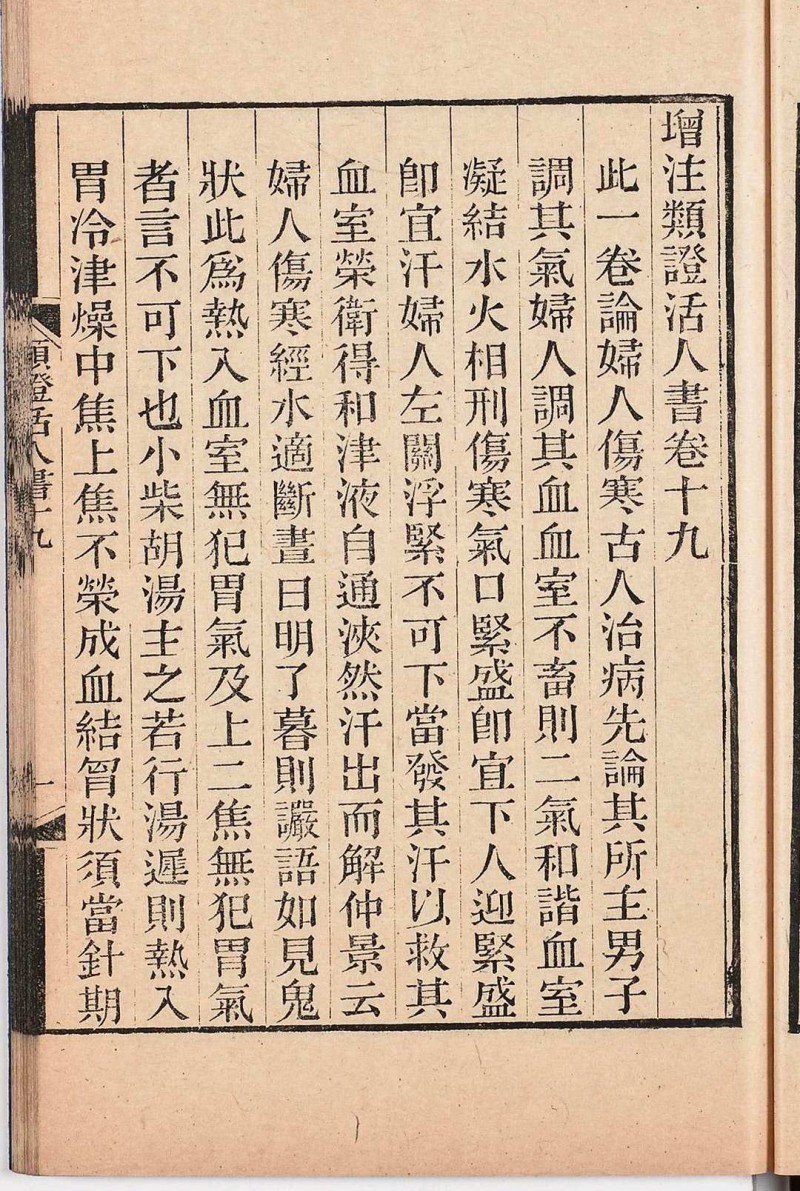 增注類證活人書卷十九
此一卷論婦人傷寒古人治病先論其所主男子
調其氣婦人調其血血室不畜則二氣和諧血室
凝結水火相刑傷寒氣口緊盛卽宜下人迎緊盛
卽宜汗婦人左關浮緊不可下當發其汗以救其
血室榮衛得和津液自通浹然汗出而解仲景云
婦人傷寒經水適斷晝日明了暮則讝語如見鬼
狀此爲熱入血室無犯胃氣及上二焦無犯胃氣
者言不可下也小柴胡湯主之若行湯遲則熱入
胃冷津燥中焦上焦不榮成血結胷狀須當針期
類證活人書十九
一